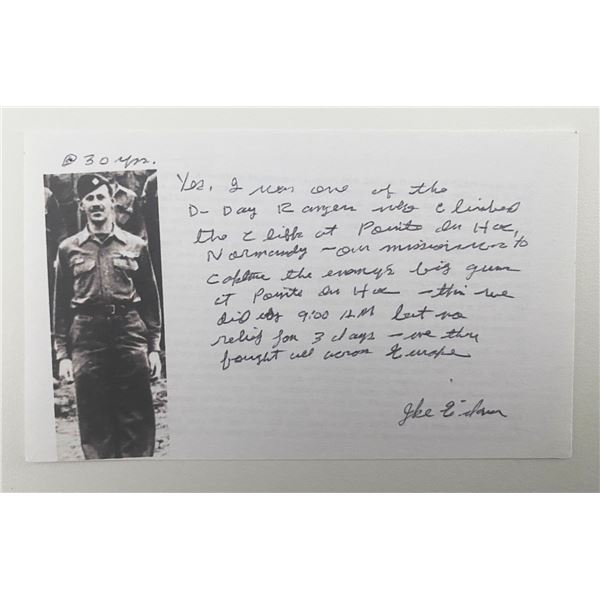 @ 30 yrs.
Yes, I was one of the
D-Day Rangers who climbed
the cliffs at Pointe du Hoc,
Normandy - our mission was to
capture the enemy's big guns
at Pointe du Hoc - this we
did by 9:00 AM but no
relief for 3 days - we then
fought all across Europe
Ike Eikner